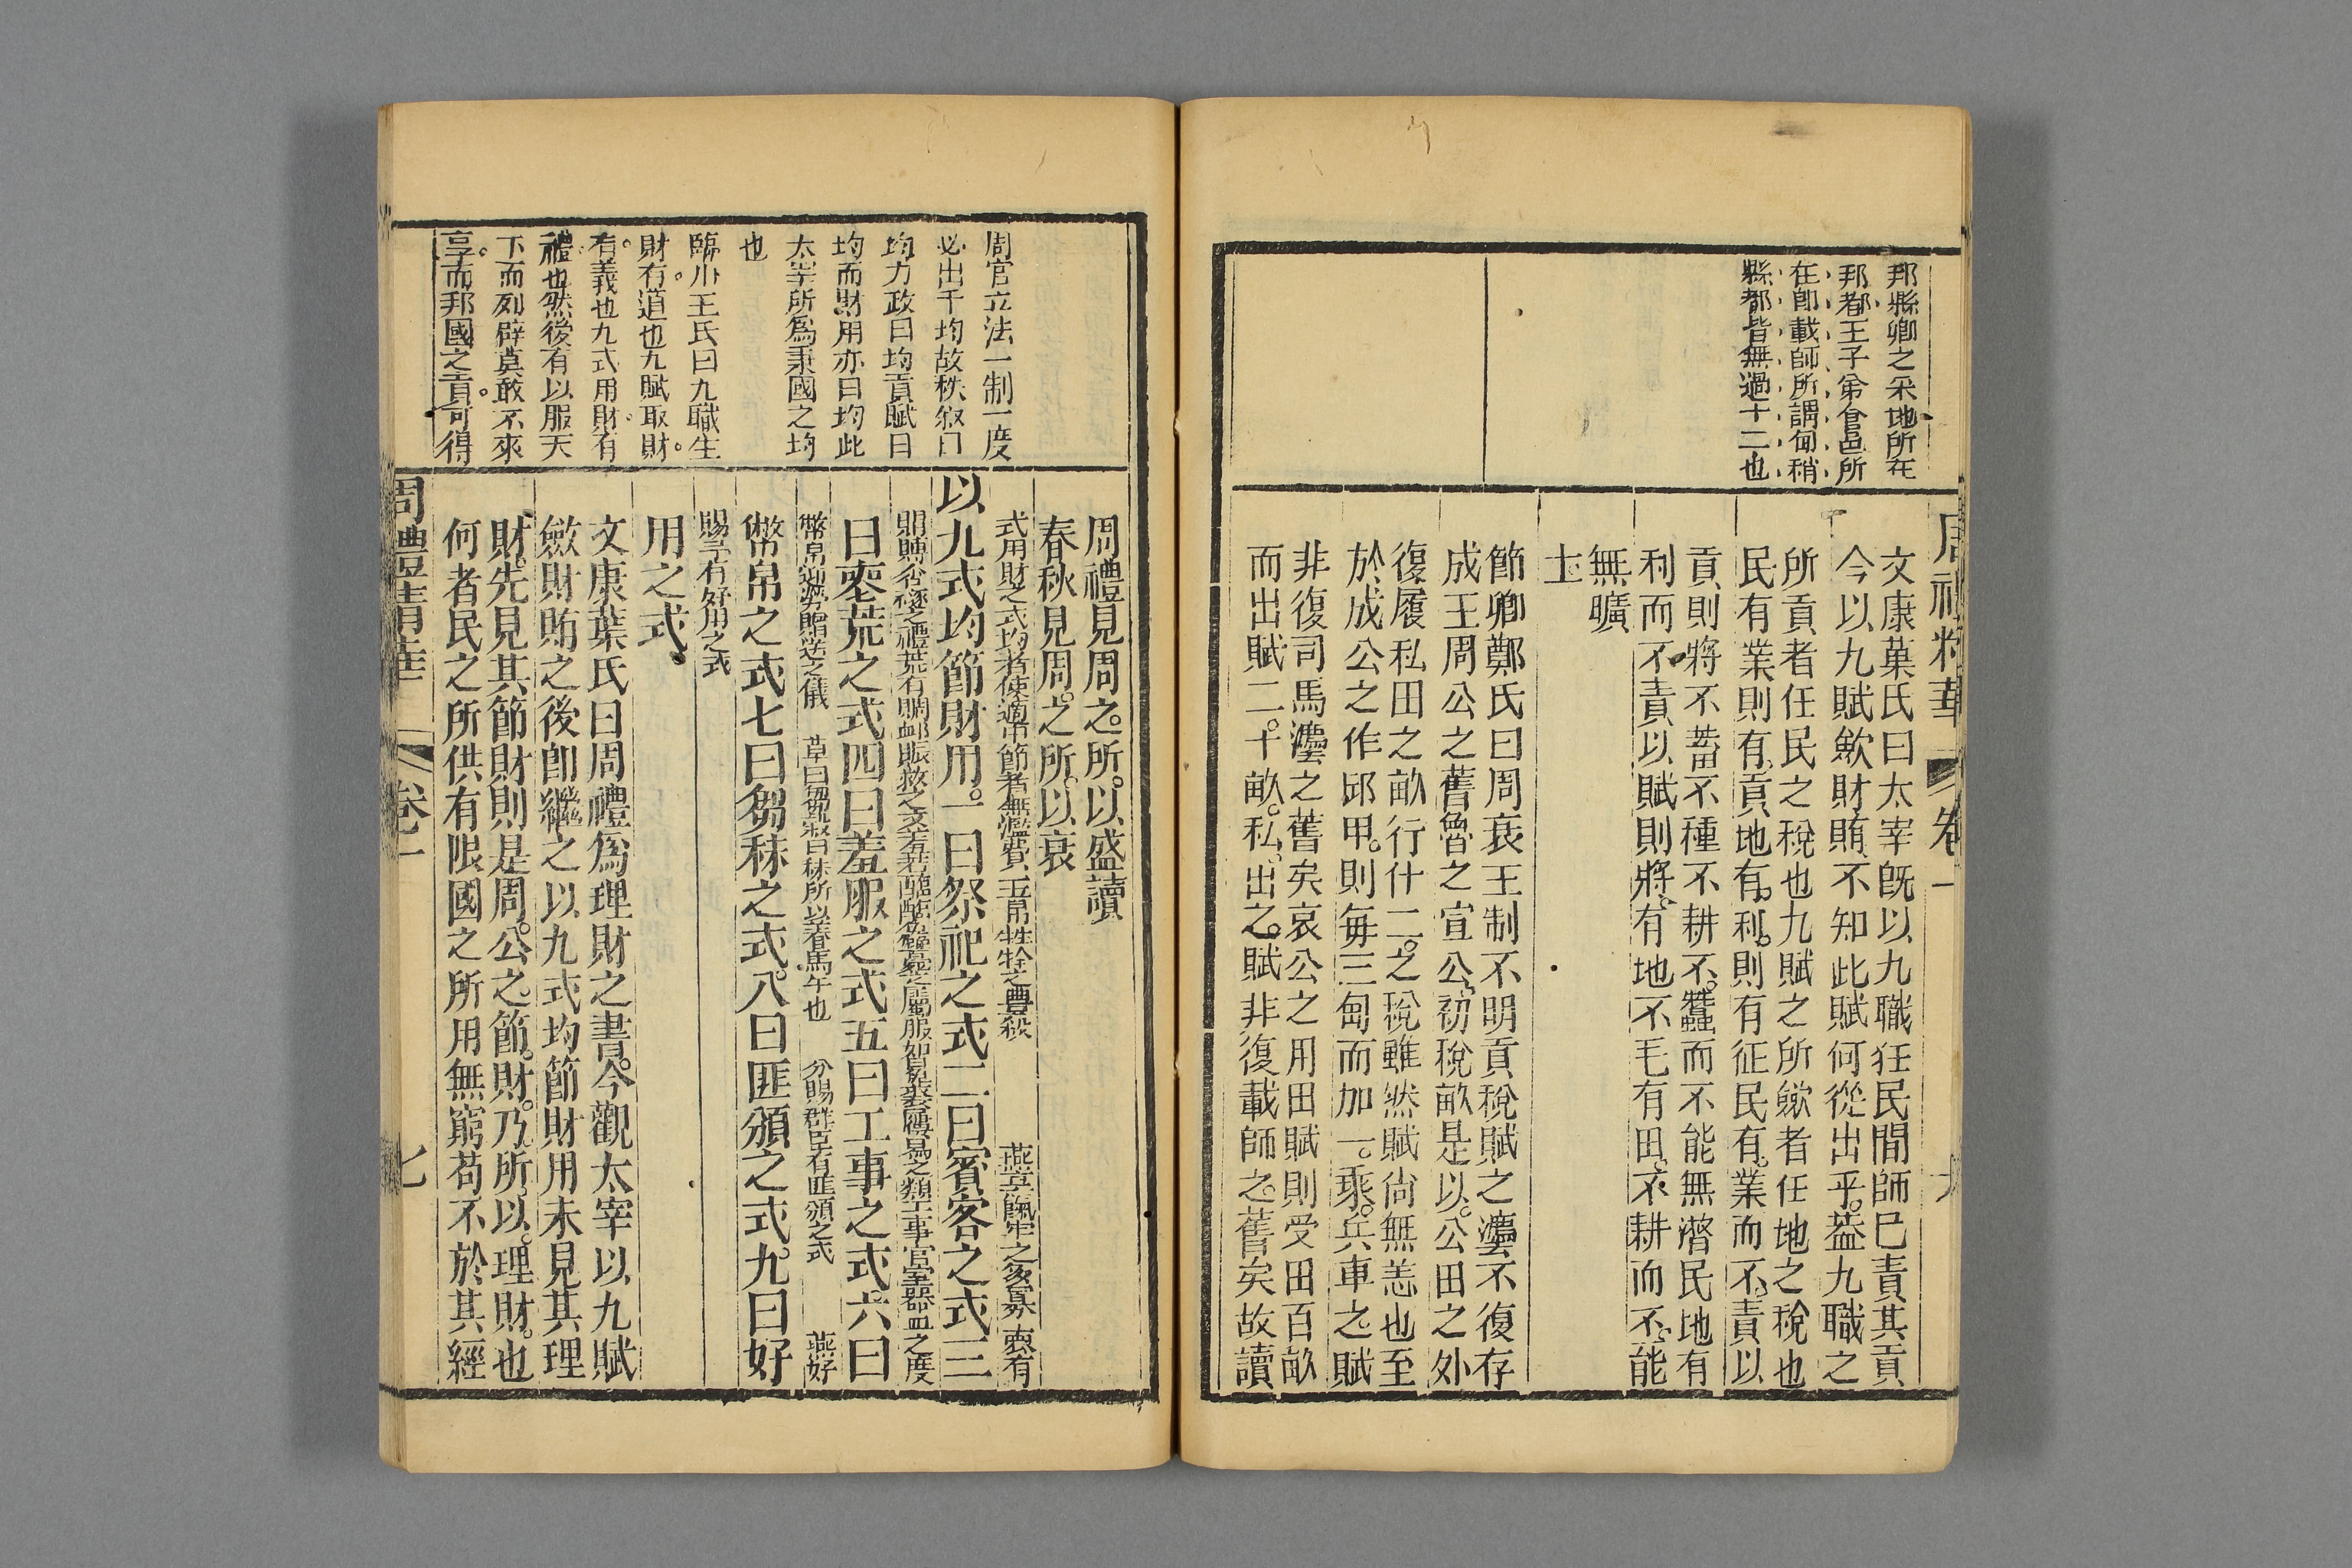 邦縣卿之采地所在
邦都王子弟食邑所
在卽載師所謂甸稍
縣都皆無過十二也
周禮精華 卷一
文康葉氏曰太宰旣以九職任民間師已責其貢
今以九賦歛財賄不知此賦何從出乎葢九職之
所貢者任民之稅也九賦之所歛者任地之稅也
民有業則有貢地有利則有征民有業而不責以
貢則將不蓄不種不耕不蠶而不能無濟民地有
利而不責以賦則將有地不毛有田不耕而不能
無曠
土
節卿鄭氏曰周衰王制不明貢稅賦之灋不復存
成王周公之舊魯之宣公初稅畝是以公田之外
復履私田之畝行什二之稅雖然賦尙無恙也至
於成公之作邱甲則每三甸而加一乘兵車之賦
非復司馬灋之舊矣哀公之用田賦則受田百畝
而出賦二十畝私出之賦非復載師之舊矣故讀
周官立法一制一度
必出于均故秩叙曰
均力政曰均貢賦曰
均而財用亦曰均此
太宰所爲秉國之均
也
臨川王氏曰九職生
財有道也九賦取財
有義也九式用財有
禮也然後有以服天
下而列辟莫敢不來
享而邦國之貢可得
周禮見周之所以盛讀
春秋見周之所以衰
式用財之式均者使適節者無濫費玉帛牲牷之豊殺 燕享饎牢之多寡 喪有
以九式均節財用一曰祭祀之式二曰賓客之式三
賵賻含襚之禮荒有賙䘏賑救之文羞若醯醢之屬服如之類工事宮室器皿之度
曰䘮荒之式四曰羞服之式五曰工事之式六曰
幣帛迎勞贈送之儀 草曰芻穀曰秣所以養馬牛也 分賜群臣有匪頒之式 燕好
幣帛之式七曰芻秣之式八曰匪頒之式九曰好
賜予有好用之式
用之式
文康葉氏曰周禮爲理財之書今觀太宰以九賦
斂財賄之後卽繼之以九式均節財用未見其理
財先見其節財則是周公之節財乃所以理財也
何者民之所供有限國之所用無窮苟不於其經
周禮精華 卷一 七